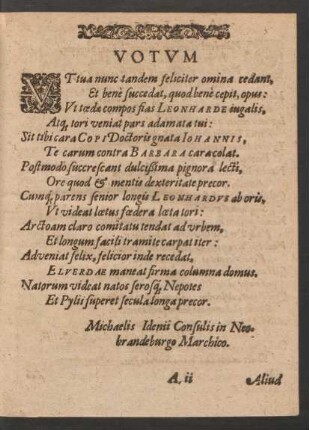 VOTVM
VT tua nunc tandem feliciter omina cedant,
Et benè succedat, quod benè cepit, opus:
Vt tædæ compos fias LEONHARDE iugalis,
Atq́; tori veniat pars adamata tui:
Sit tibi cara COPI Doctoris gnata IOHANNIS,
Te carum contra BARBARA cara colat.
Postmodo succrescant dulcißima pignora lecti,
Ore quod & mentis dexteritate precor.
Cumq́; parens senior longis LEONHARDVS ab oris,
Vt videat lætus fœdera læta tori:
Arctoam claro comitatu tendat ad vrbem,
Et longum facili tramite carpat iter:
Adveniat felix, felicior inde recedat,
ELVERDAE maneat firma columna domus.
Natorum videat natos serosq́; Nepotes
Et Pylis superet secula longa precor.
Michaelis Idenii Consulis in Neo-
brandeburgo Marchico.
A ii Aliud